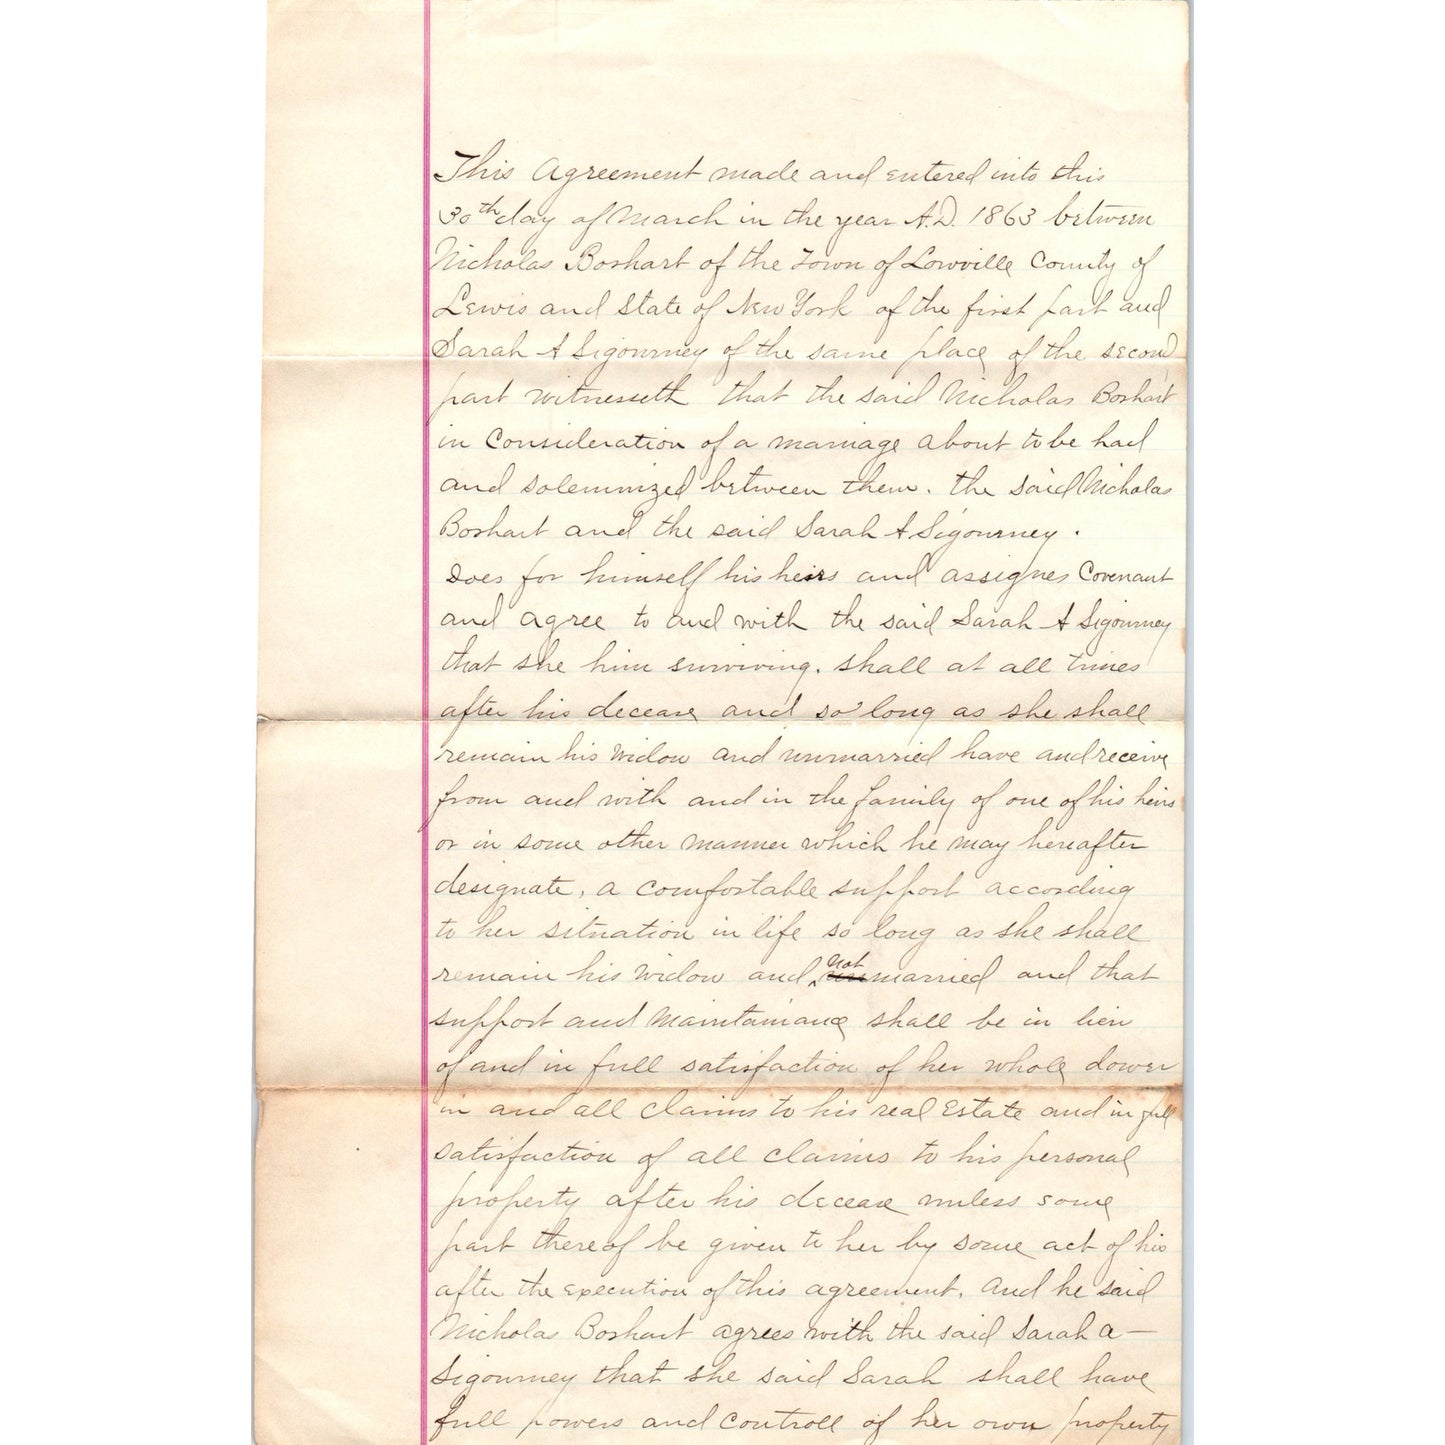 This Agreement made and entered into this
30th day of March in the year A.D. 1863 between
Nicholas Boshart of the Town of Lowville County of
Lewis and State of New York of the first part and
Sarah A Sigourney of the same place of the second
part witnesseth that the said Nicholas Boshart
in Consideration of a marriage about to be had
and solemnized between them. the said Nicholas
Boshart and the said Sarah A Sigourney.
Does for himself his heirs and assignes Covenant
and agree to and with the said Sarah A Sigourney
that she him surviving. shall at all times
after his decease and so long as she shall
remain his widow and unmarried have and receive
from and with and in the family of one of his heirs
or in some other manner which he may hereafter
designate, a comfortable support according
to her situation in life so long as she shall
remain his widow and not unmarried and that
support and Maintainance shall be in lieu
of and in full satisfaction of her whole dower
in and all claims to his real Estate and in full
satisfaction of all claims to his personal
property after his decease unless some
part thereof be given to her by some act of his
after the execution of this agreement. And he said
Nicholas Boshart agrees with the said Sarah A—
Sigourney that she said Sarah shall have
full powers and controll of her own property